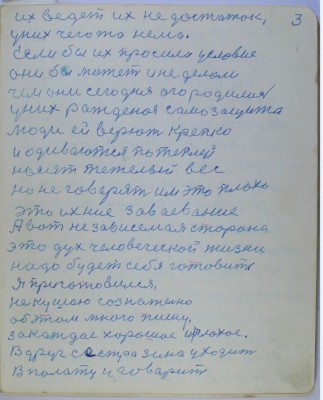 3
их ведет их не достаток,
у них чегота нема.
Если бы их просила условие
они бы может и не делали
чем они сегодня огородились
у них раждена самозащита
люди ей верют крепко
и одиваются потеплей
носят тежелый вес
но не говарят им это плохо
это ихние заваевание
А вот не зависемая сторона
это дух человеческой жизни
надо будет себя готовить
я приготовился,
не кушаю сознательно
об этом много пишу,
за каждае хорошае и плохое.
Вдруг сестра зина уходит
В полату и говарит